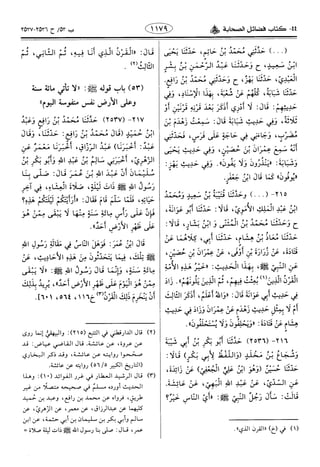 ٤٤- كتاب فضائل الصحابة
١١٧٩
ب ٥٢/ ح ٢٥٣٦-٢٥٣٧
(...) حَدَّثَنِي مُحَمَّدُ بْنُ حَاتِمٍ، حَدَّثَنَا يَحْيَى
ابْنُ سَعِيدٍ، ح وَحَدَّثَنَا عَبْدُ الرَّحْمَنِ بْنُ بِشْرٍ
الْعَبْدِيُّ، حَدَّثَنَا بَهْزٌ، ح وَحَدَّثَنِي مُحَمَّدُ بْنُ رَافِعٍ،
حَدَّثَنَا شَبَابَةُ، كُلُّهُمْ عَنْ شُعْبَةَ، بِهَذَا الْإِسْنَادِ، وَفِي
حَدِيثِهِمْ: قَالَ: لَا أَدْرِي أَذَكَرَ بَعْدَ قَرْنِهِ قَرْنَيْنِ أَوْ
ثَلَاثَةً، وَفِي حَدِيثِ شَبَابَةَ قَالَ: سَمِعْتُ زَهْدَمَ بْنَ
مُضَرِّبٍ، وَجَاءَنِي فِي حَاجَةٍ عَلَى فَرَسٍ، فَحَدَّثَنِي
أَنَّهُ سَمِعَ عِمْرَانَ بْنَ حُصَيْنٍ، وَفِي حَدِيثِ يَحْيَى
وَشَبَابَةَ: «يَنْذُرُونَ وَلَا يَفُونَ». وَفِي حَدِيثِ بَهْزٍ:
«يُوفُونَ» كَمَا قَالَ ابْنُ جَعْفَرٍ.
٢١٥- (...) وَحَدَّثَنَا قُتَيْبَةُ بْنُ سَعِيدٍ وَمُحَمَّدُ
ابْنُ عَبْدِ الْمَلِكِ الْأُمَوِيُّ، قَالَا: حَدَّثَنَا أَبُو عَوَانَةَ،
ح وَحَدَّثَنَا مُحَمَّدُ بْنُ الْمُثَنَّى وَ ابْنُ بَشَّارٍ، قَالَا:
حَدَّثَنَا مُعَاذُ بْنُ هِشَامٍ، حَدَّثَنَا أَبِي، كِلَاهُمَا عَنْ
قَتَادَةَ، عَنْ زُرَارَةَ بْنِ أَوْفَى، عَنْ عِمْرَانَ بْنِ حُصَيْنٍ،
عَنِ النَّبِيِّ ﷺ، بِهَذَا الْحَدِيثِ: «خَيْرُ هَذِهِ الْأُمَّةِ
الْقَرْنُ الَّذِينَ(١) بُعِثْتُ فِيهِمْ، ثُمَّ الَّذِينَ يَلُونَهُمْ». زَادَ
فِي حَدِيثِ أَبِي عَوَانَةَ قَالَ: «وَاللهُ أَعْلَمُ، أَذَكَرَ الثَّالِثَ
أَمْ لَا بِمِثْلِ حَدِيثِ زَهْدَمٍ عَنْ عِمْرَانَ وَزَادَ فِي حَدِيثِ
هِشَامٍ عَنْ قَتَادَةَ: «وَيَحْلِفُونَ وَلَا يُسْتَحْلَفُونَ».
٢١٦- (٢٥٣٦) حَدَّثَنَا أَبُو بَكْرِ بْنُ أَبِي شَيْبَةَ
وَشُجَاعُ بْنُ مَخْلَدٍ (وَاللَّفْظُ لِأَبِي بَكْرٍ) قَالَا:
حَدَّثَنَا حُسَيْنٌ (وَهُوَ ابْنُ عَلِيٍّ الْجُعْفِيُّ) عَنْ زَائِدَةَ،
عَنِ السُّدِّيِّ، عَنْ عَبْدِ اللهِ الْبَهِيِّ، عَنْ عَائِشَةَ.
قَالَتْ: سَأَلَ رَجُلٌ النَّبِيَّ ﷺ: «أَيُّ النَّاسِ خَيْرٌ؟
(١) في (خ) «القرن الذي».
قَالَ: «الْقَرْنُ الَّذِي أَنَا فِيهِ، ثُمَّ الثَّانِي، ثُمَّ
الثَّالِثُ(٢)».
(٥٣) بَاب قوله ﷺ: «لا تأتي مائة سنة
وعلى الأرض نفس منفوسة اليوم»
٢١٧- (٢٥٣٧) حَدَّثَنَا مُحَمَّدُ بْنُ رَافِعٍ وَعَبْدُ
ابْنُ حُمَيْدٍ (قَالَ مُحَمَّدُ بْنُ رَافِعٍ: حَدَّثَنَا، وَقَالَ
عَبْدٌ: أَخْبَرَنَا) عَبْدُ الرَّزَّاقِ، أَخْبَرَنَا مَعْمَرٌ عَنِ
الزُّهْرِيِّ، أَخْبَرَنِي سَالِمُ بْنُ عَبْدِ اللهِ وَأَبُو بَكْرِ بْنُ
سُلَيْمَانَ أَنَّ عَبْدَ اللهِ بْنَ عُمَرَ قَالَ: صَلَّى بِنَا
رَسُولُ اللهِ ﷺ ذَاتَ لَيْلَةٍ، صَلَاةَ الْعِشَاءِ، فِي آخِرِ
حَيَاتِهِ، فَلَمَّا سَلَّمَ قَامَ فَقَالَ: «أَرَأَيْتَكُمْ لَيْلَتَكُمْ هَذِهِ؟
فَإِنَّ عَلَى رَأْسِ مِائَةِ سَنَةٍ مِنْهَا لَا يَبْقَى مِمَّنْ هُوَ
عَلَى ظَهْرِ الْأَرْضِ أَحَدٌ».
قَالَ ابْنُ عُمَرَ: فَوَهَلَ النَّاسُ فِي مَقَالَةِ رَسُولِ اللهِ
ﷺ تِلْكَ، فِيمَا يَتَحَدَّثُونَ مِنْ هَذِهِ الْأَحَادِيثِ، عَنْ
مِائَةِ سَنَةٍ، وَإِنَّمَا قَالَ رَسُولُ اللهِ ﷺ: «لَا يَبْقَى
مِمَّنْ هُوَ الْيَوْمَ عَلَى ظَهْرِ الْأَرْضِ أَحَدٌ». يُرِيدُ بِذَلِكَ
أَنْ يَنْخَرِمَ ذَلِكَ الْقَرْنُ(٣) [خ١١٦، ٥٦٤، ٦٠١].
(٢) قال الدارقطني في التتبع (٢١٥): والبهيّ إنما روى
عن عروة، عن عائشة. قال القاضي عياض: قد
صححوا روايته عن عائشة، وقد ذكر البخاري
(التاريخ الكبير ٥٦/٥) روايته عن عائشة.
(٣) قال الرشيد العطار في غرر الفوائد (١٠): وهذا
الحديث أورده مسلم في صحيحه متصلًا من غير
طريق، فرواه عن محمد بن رافع، وعبد بن حُميد
كليهما عن عبدالرزاق، عن معمر، عن الزهري، عن
سالم وأبي بكر بن سليمان بن أبي حثمة، عن ابن
عمر، قال: صلى بنا رسول الله ﷺ ذات ليلة صلاة =